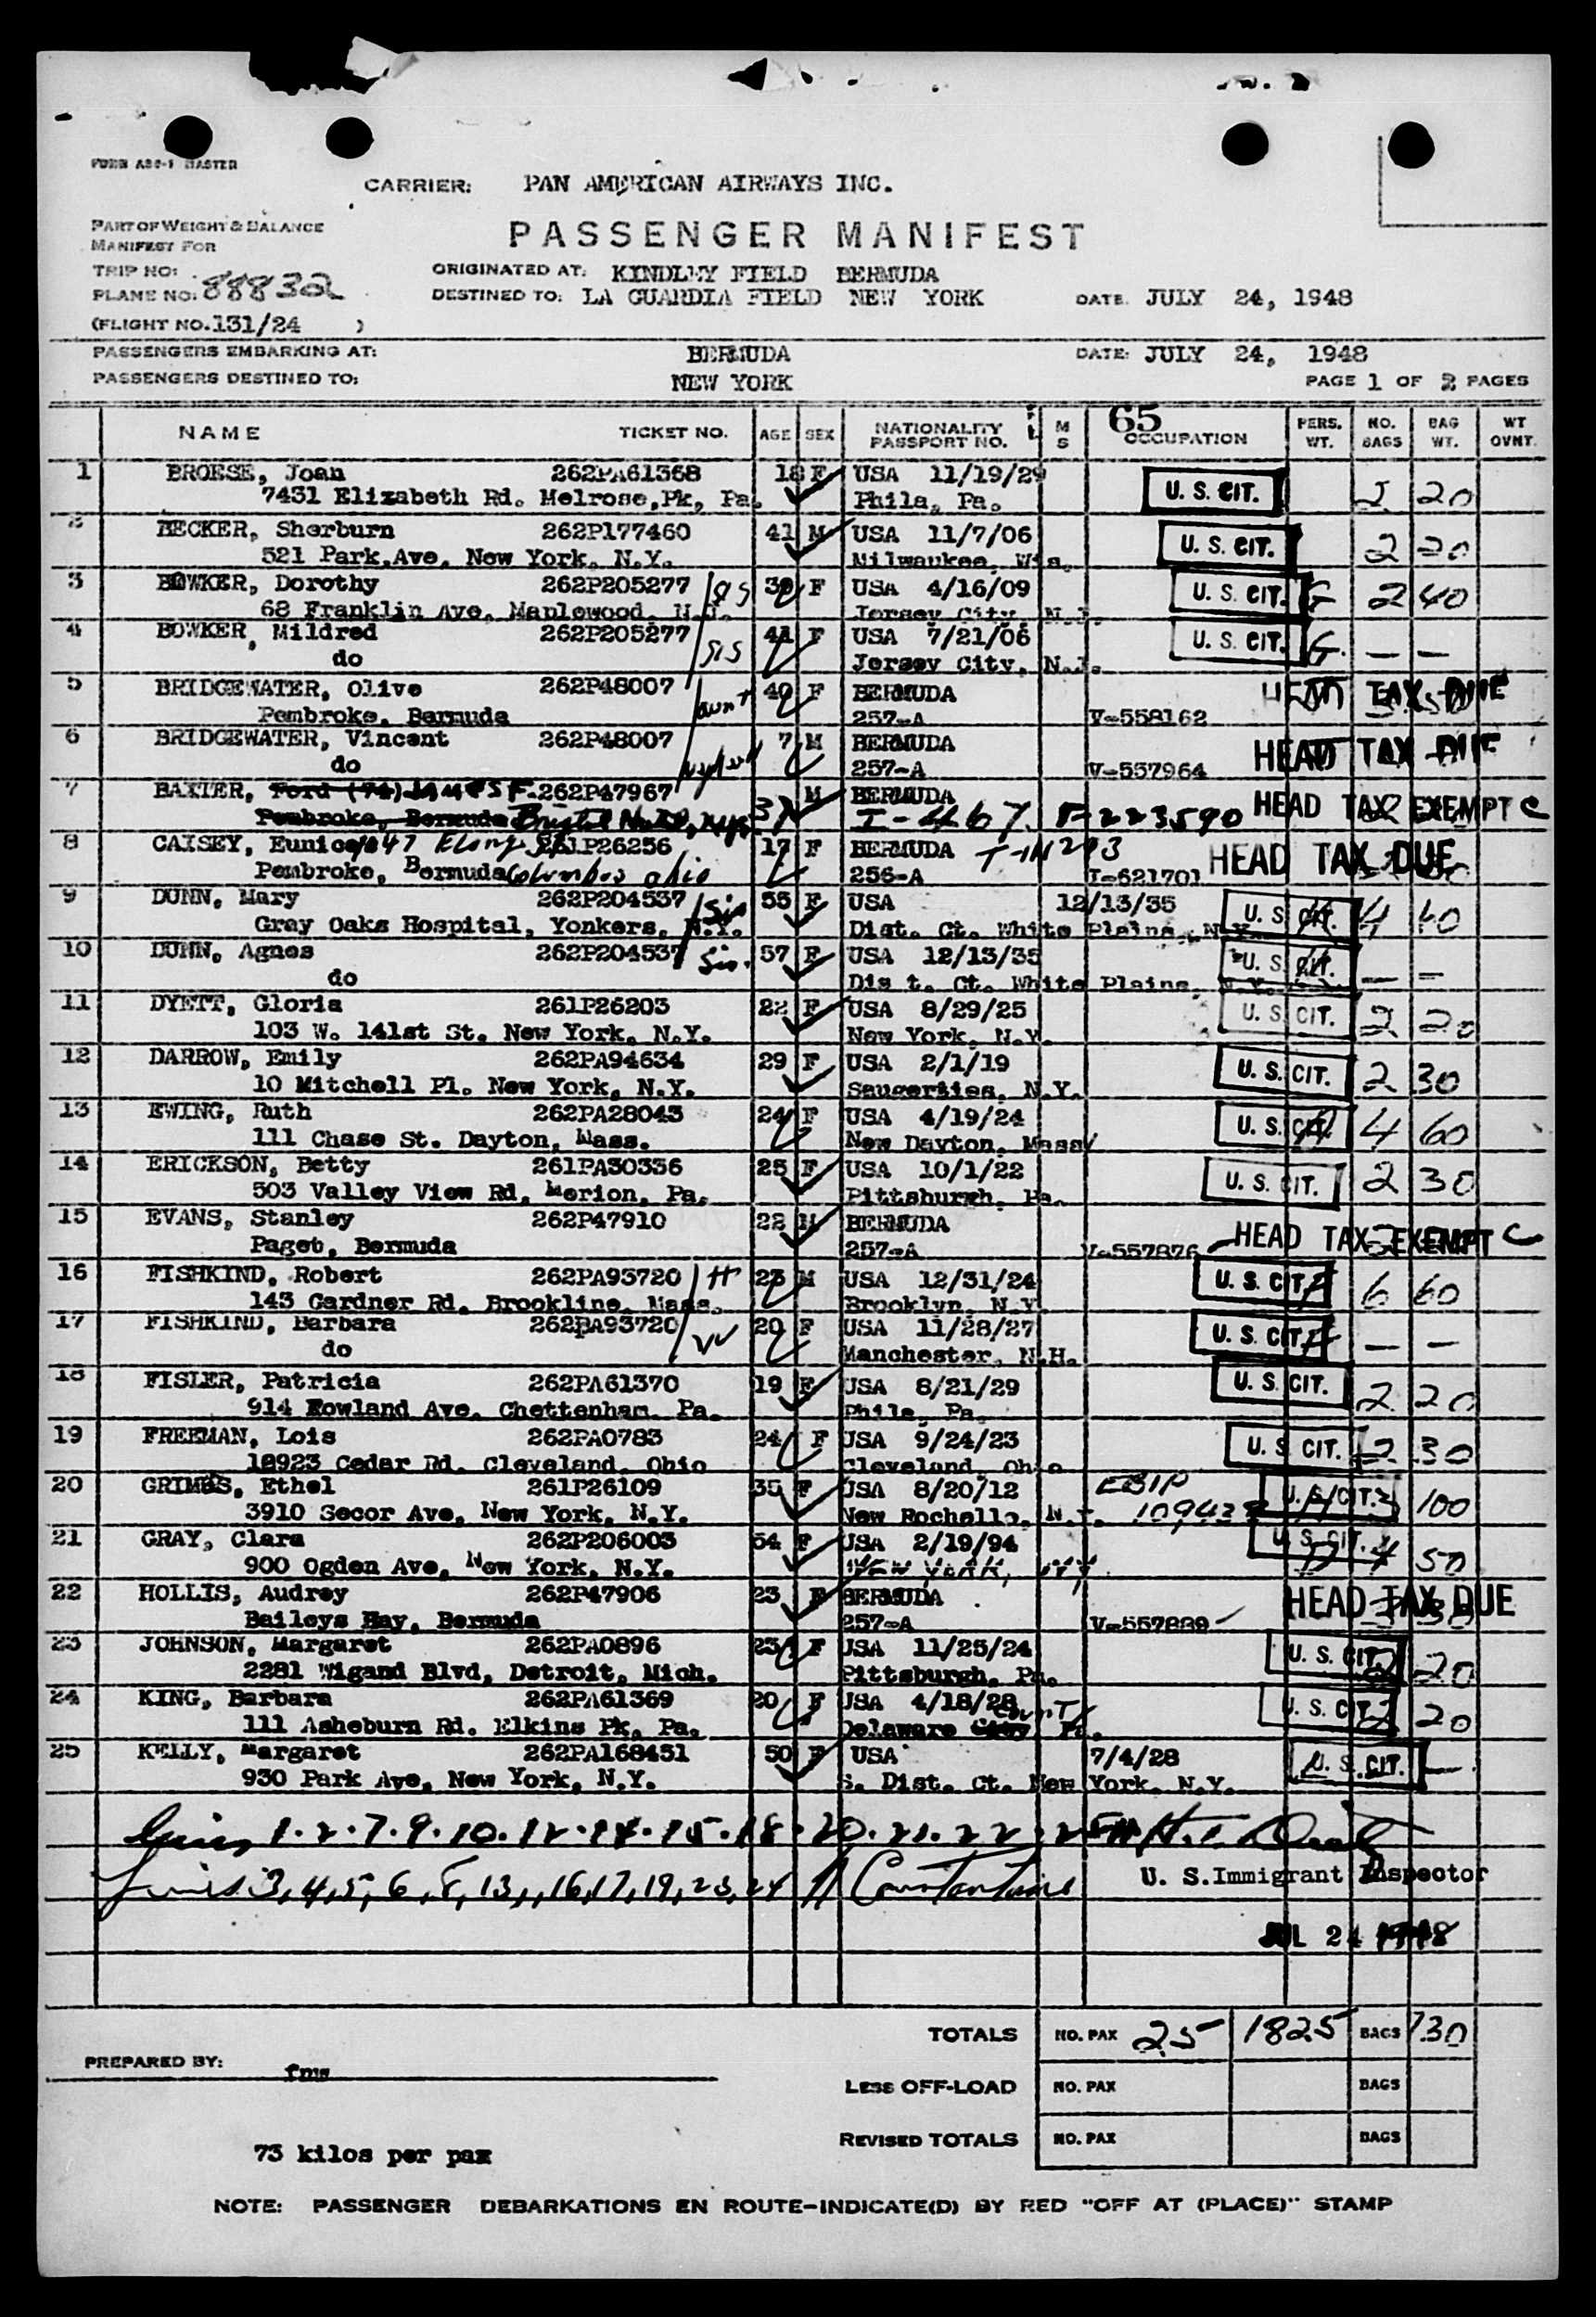 FORM ABC-1 MASTER
CARRIER: PAN AMERICAN AIRWAYS INC.
PART OF WEIGHT & BALANCE
MANIFEST FOR
PASSENGER MANIFEST
TRIP NO:
PLANE NO: 88832
(FLIGHT NO. 131/24 )
ORIGINATED AT: KINDLEY FIELD BERMUDA
DESTINED TO: LA GUARDIA FIELD NEW YORK DATE JULY 24, 1948
PASSENGERS EMBARKING AT: BERMUDA DATE: JULY 24, 1948
PASSENGERS DESTINED TO: NEW YORK PAGE 1 OF 2 PAGES
65
NAME TICKET NO. AGE SEX NATIONALITY PASSPORT NO. M S OCCUPATION PERS. WT. NO. BAGS BAG WT. WT OVNT.
1 BROESE, Joan 262PA61368 18 F USA 11/19/29 U. S. CIT. 2 20
7431 Elizabeth Rd. Melrose, Pk, Pa. Phila, Pa.
2 BECKER, Sherburn 262P177460 41 M USA 11/7/06 U. S. CIT. 2 20
521 Park. Ave. New York, N.Y. Milwaukee, Wis.
3 BOWKER, Dorothy 262P205277 sis 39 F USA 4/16/09 U. S. CIT. G 2 40
68 Franklin Ave, Maplewood, N.J. Jersey City, N.J.
4 BOWKER, Mildred 262P205277 sis 41 F USA 7/21/06 U. S. CIT. G. — —
do Jersey City, N.J.
5 BRIDGEWATER, Olive 262P48007 aunt 40 F BERMUDA HEAD TAX DUE
Pembroke, Bermuda 257-A V-558162
6 BRIDGEWATER, Vincent 262P48007 nephew 7 M BERMUDA HEAD TAX DUE
do 257-A V-557964
7 BAXTER, Ford (74) JAMES F. 262P47967 37 M BERMUDA HEAD TAX EXEMPT C
Pembroke, Bermuda Bristol I-467 F-223590
8 CAISEY, Eunice 261P26256 17 F BERMUDA HEAD TAX DUE
Pembroke, Bermuda Columbus Ohio 256-A I-621701
9 DUNN, Mary 262P204537 Sis 55 F USA 12/13/35 U. S. CIT. 4 40
Gray Oaks Hospital, Yonkers, N.Y. Dist. Ct. White Plains, N.Y.
10 DUNN, Agnes 262P204537 Sis. 57 F USA 12/13/35 U. S. CIT. — —
do Dis t. Ct. White Plains, N.Y.
11 DYETT, Gloria 261P26203 22 F USA 8/29/25 U. S. CIT. 2 20
103 W. 141st St. New York, N.Y. New York, N.Y.
12 DARROW, Emily 262PA94634 29 F USA 2/1/19 U. S. CIT. 2 30
10 Mitchell Pl. New York, N.Y. Saugerties, N.Y.
13 EWING, Ruth 262PA28043 24 F USA 4/19/24 U. S. CIT. 4 60
111 Chase St. Dayton, Mass. New Dayton, Mass/
14 ERICKSON, Betty 261PA30336 25 F USA 10/1/22 U. S. CIT. 2 30
503 Valley View Rd, Merion, Pa. Pittsburgh, Pa.
15 EVANS, Stanley 262P47910 22 M BERMUDA HEAD TAX EXEMPT C
Paget, Bermuda 257-A V-557876
16 FISHKIND, Robert 262PA93720 H 23 M USA 12/31/24 U. S. CIT. 6 60
143 Gardner Rd, Brookline, Mass. Brooklyn, N.Y.
17 FISHKIND, Barbara 262PA93720 W 20 F USA 11/28/27 U. S. CIT. — —
do Manchester, N.H.
18 FISLER, Patricia 262PA61370 19 F USA 8/21/29 U. S. CIT. 2 20
914 Rowland Ave. Chettenham, Pa. Phila, Pa.
19 FREEMAN, Lois 262PA0783 24 F USA 9/24/23 U. S. CIT. 2 30
18923 Cedar Rd. Cleveland, Ohio Cleveland, Ohio
20 GRIMES, Ethel 261P26109 35 F USA 8/20/12 U. S. CIT. 100
3910 Secor Ave, New York, N.Y. New Rochelle, N.Y.
21 GRAY, Clara 262P206003 54 F USA 2/19/94 U. S. CIT. 4 50
900 Ogden Ave, New York, N.Y. NEW YORK, NY
22 HOLLIS, Audrey 262P47906 23 F BERMUDA HEAD TAX DUE
Baileys Bay, Bermuda 257-A V-557889
23 JOHNSON, Margaret 262PA0896 23 F USA 11/25/24 U. S. CIT. 2 20
2281 Wigand Blvd, Detroit, Mich. Pittsburgh, Pa.
24 KING, Barbara 262PA61369 20 F USA 4/18/28 U. S. CIT. 2 20
111 Asheburn Rd. Elkins Pk, Pa. Delaware City County Pa.
25 KELLY, Margaret 262PA168451 50 F USA 7/4/28 U. S. CIT. —
930 Park Ave, New York, N.Y. S. Dist. Ct. New York, N.Y.
Lines 1.2.7.9.10.12.14.15.18.20.21.22.25
Lines 3,4,5,6,8,13,,16,17,19,23,24 Constantine U. S. Immigrant Inspector
JUL 24 1948
TOTALS NO. PAX 25 1825 BAGS 730
PREPARED BY: fmw
LESS OFF-LOAD NO. PAX BAGS
REVISED TOTALS NO. PAX BAGS
73 kilos per pax
NOTE: PASSENGER DEBARKATIONS EN ROUTE-INDICATE(D) BY RED "OFF AT (PLACE)" STAMP